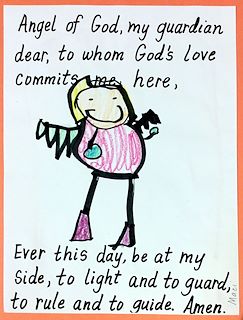 Angel of God, my guardian
dear, to whom God's love
commits me here,
Ever this day, be at my
side, to light and to guard,
to rule and to guide. Amen.